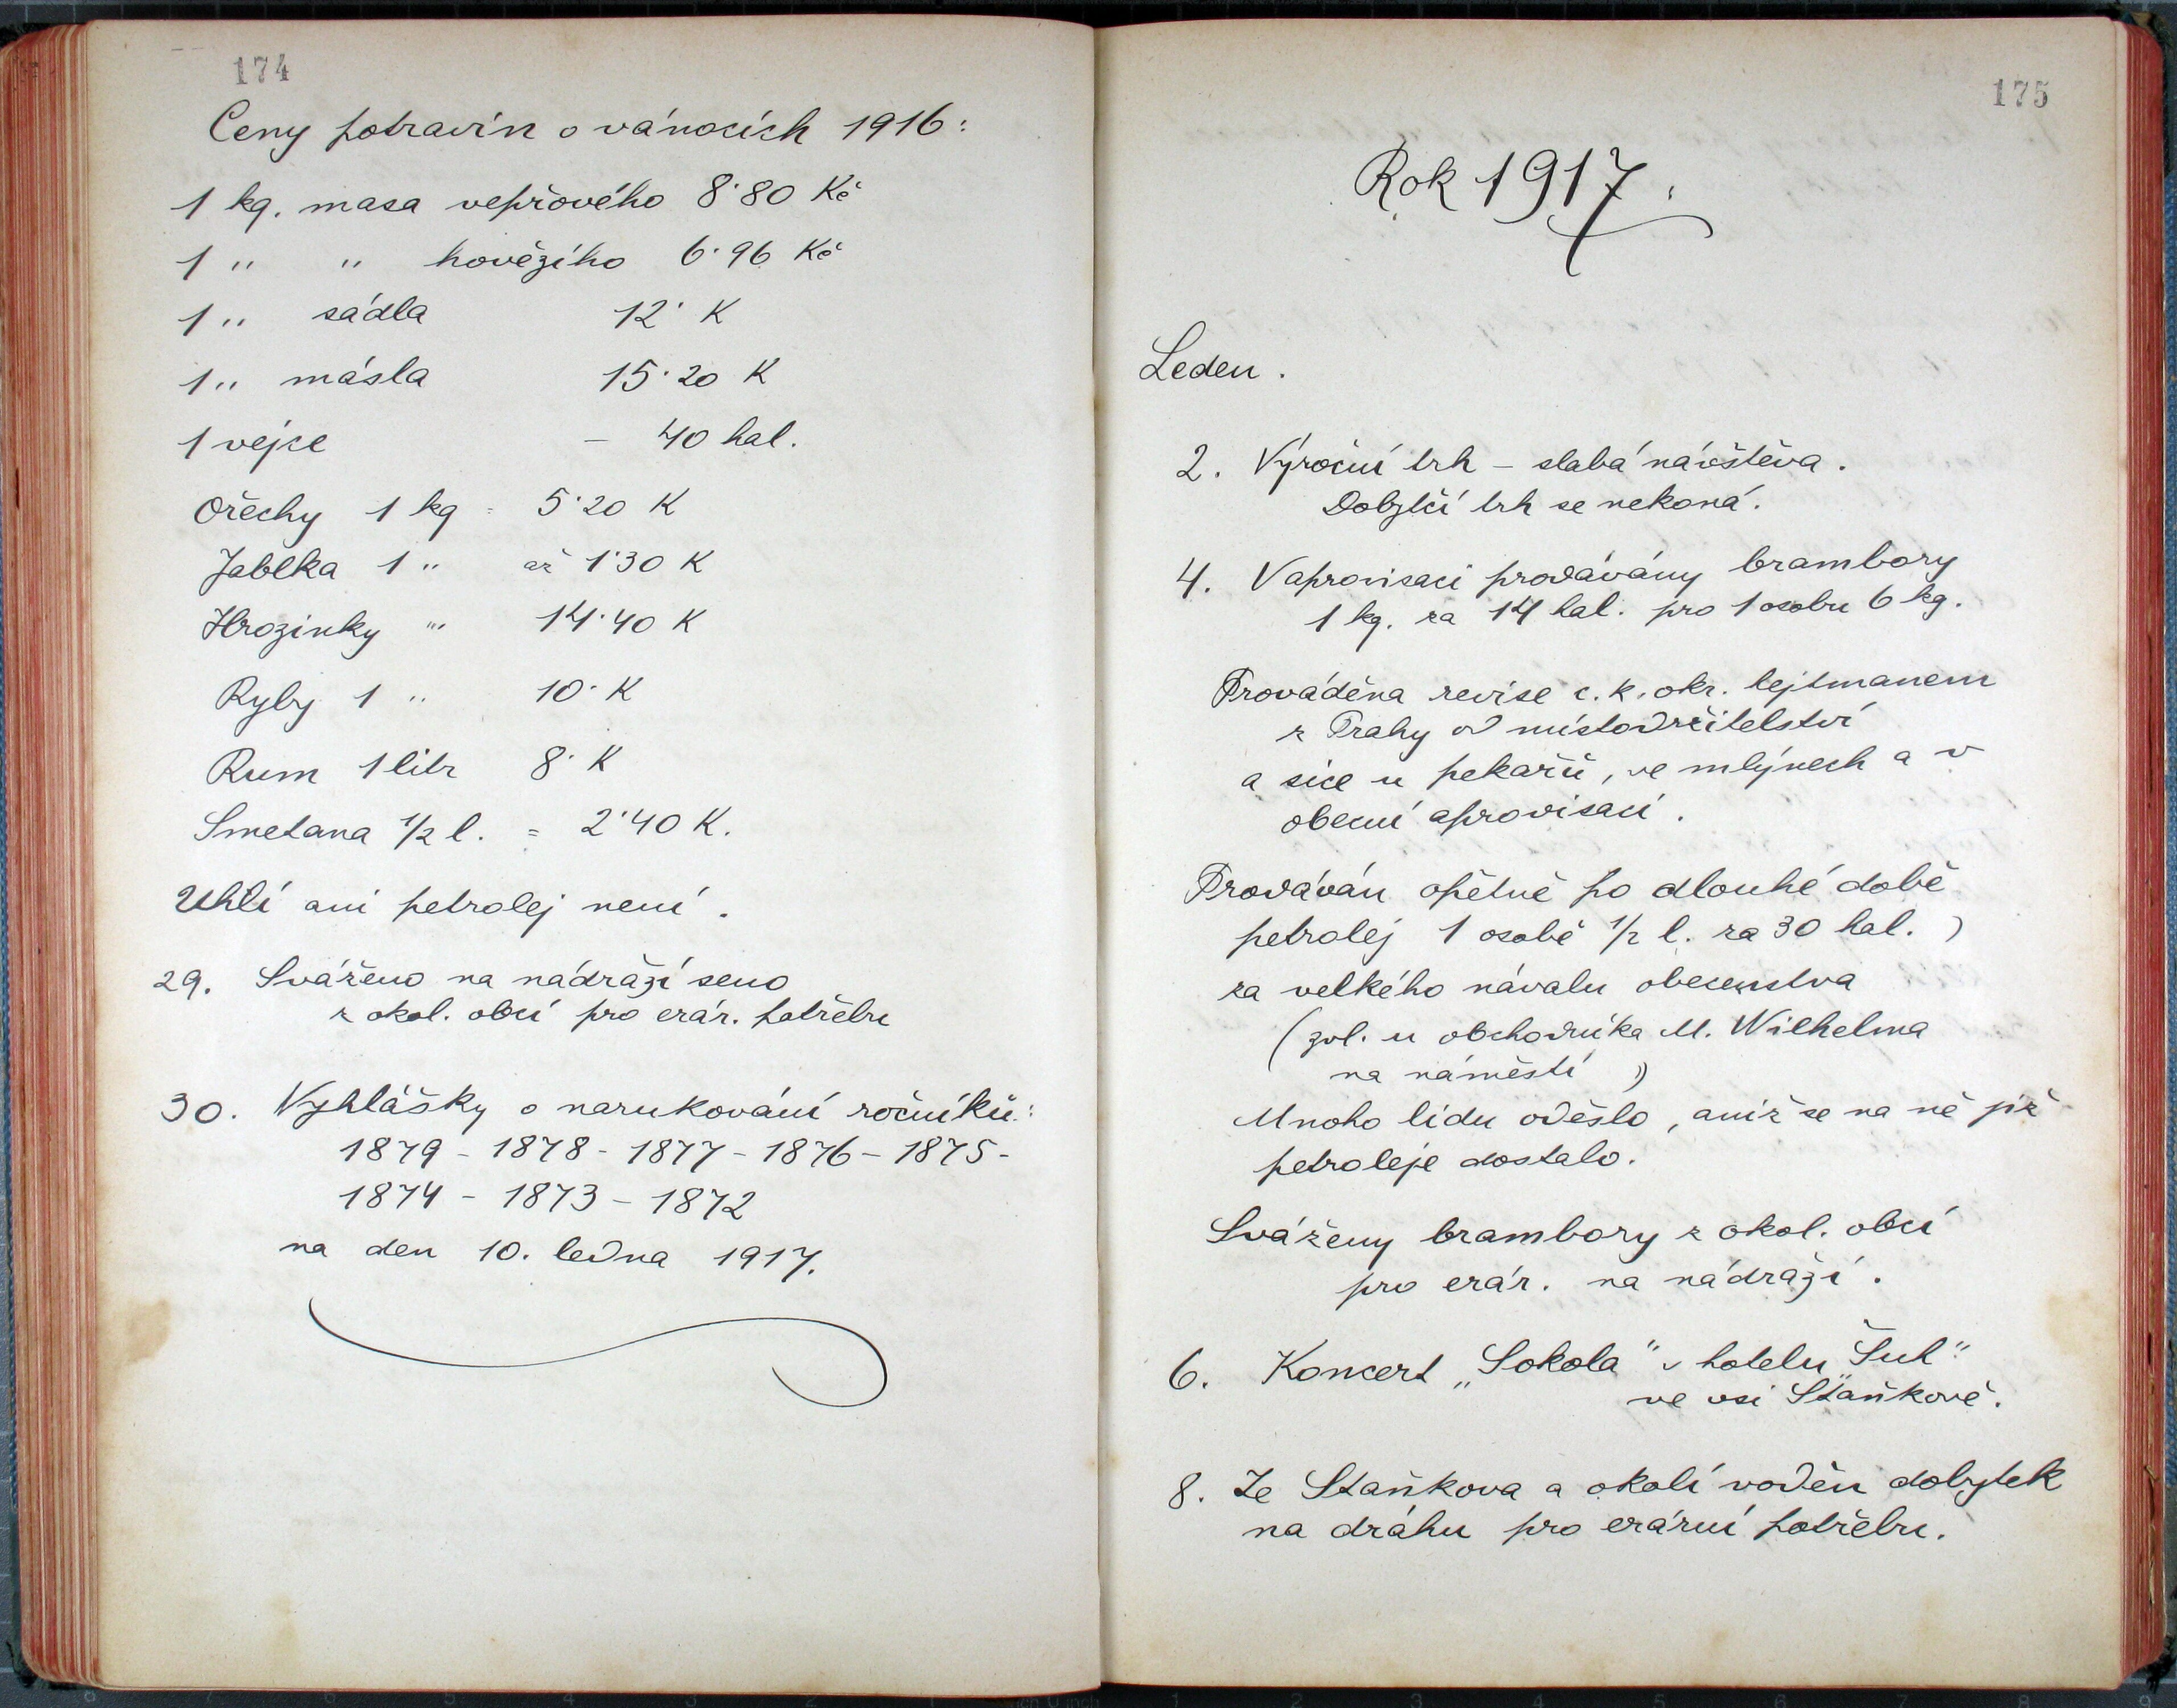 174
Ceny potravin o vánocích 1916:
1 kg. masa vepřového 8·80 Kč
1 " " hovězího 6·96 Kč
1 " sádla 12· K
1 " másla 15·20 K
1 vejce – 40 hal.
Ořechy 1 kg = 5·20 K
Jablka 1 " až 1·30 K
Hrozinky "' 14·40 K
Ryby 1 " 10· K
Rum 1 litr 8· K
Smetana 1/2 l. = 2·40 K.
Uhlí ani petrolej není.
29. Sváženo na nádraží seno
z okol. obcí pro erár. potřebu
30. Vyhlášky o narukování ročníků:
1879 - 1878 - 1877 - 1876 - 1875 -
1874 - 1873 - 1872
na den 10. ledna 1917.
175
Rok 1917.
Leden.
2. Výroční trh – slabá návštěva.
Dobytčí trh se nekoná.
4. V aprovisaci prodávány brambory
1 kg. za 14 hal. pro 1 osobu 6 kg.
Prováděna revise c. k. okr. hejtmanem
z Prahy od místodržitelství
a sice u pekařů, ve mlýnech a v
obecní aprovisaci.
Prodáván opětně po dlouhé době
petrolej 1 osobě 1/2 l. za 30 hal. )
za velkého návalu obecenstva
(zvl. u obchodníka M. Wilhelma
na náměstí )
Mnoho lidu odešlo, aniž se na ně již
petroleje dostalo.
Sváženy brambory z okol. obcí
pro erár. na nádraží.
6. Koncert „Sokola" v hotelu „Šul"
ve vsi Staňkově.
8. Ze Staňkova a okolí voděn dobytek
na dráhu pro erární potřebu.